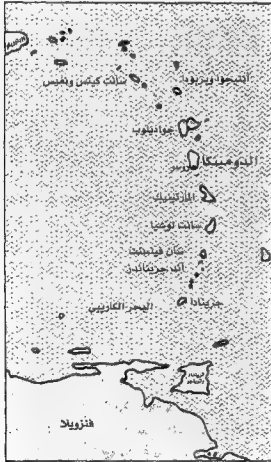 أنتيجوا وبربودا
سانت كيتس ونفيس
جوادیلوب
الدومينكا
روسو
المارتينيك
سانت لوشيا
سان فينسنت
آند جرينادز
جرينادا
البحر الكاريبي
فنزويلا